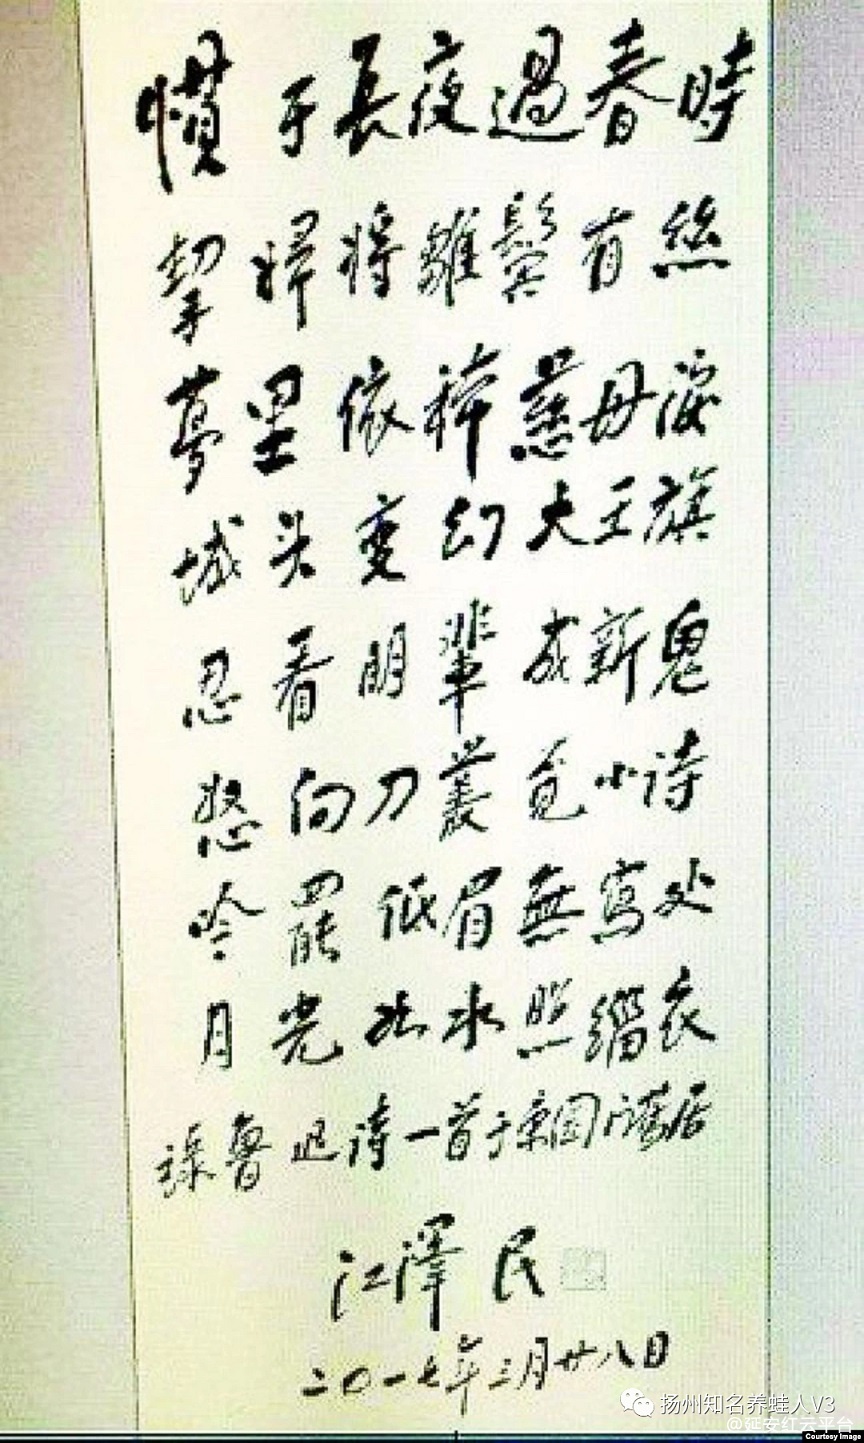 慣于長夜過春時
挈婦將雛鬢有絲
夢里依稀慈母淚
城头變幻大王旗
忍看朋輩成新鬼
怒向刀叢覓小诗
吟罷低眉無寫处
月光如水照緇衣
録魯迅诗一首于 居
江澤民
二〇一七年三月廿八日
扬州知名养蛙人V3
@延安红云平台
Courtesy Image